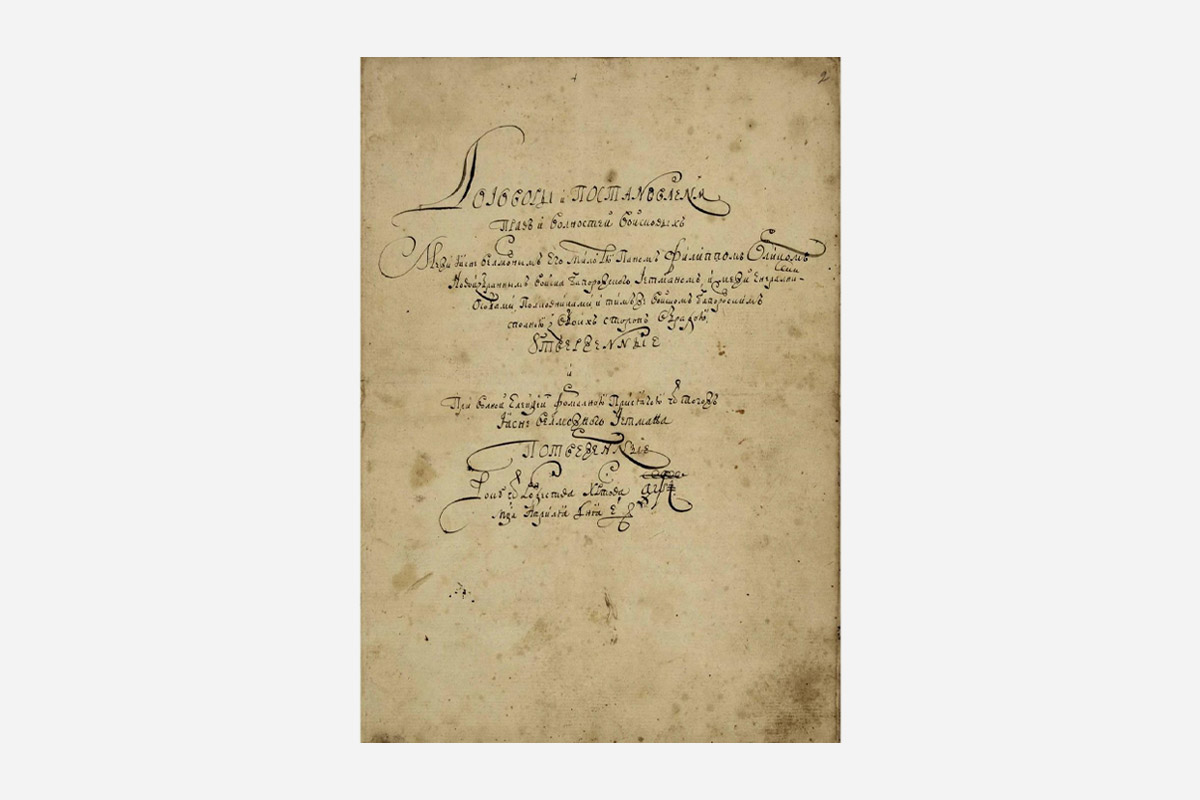 2
Договоры и ПОСТАНОВЛЕНЯ
Правъ и волностей Войсковыхъ
Межи Ясне велможнымъ Его Милостю Паномъ Филиппомъ Орликомъ
Новоизбраннымъ Войска Запорозского Гетманомъ, и межи Енералними
Особами, Полковниками, и тимъ же Войскомъ Запорозскимъ
сполною з обоихъ сторонъ обрадою,
УТВЕРЖЕННЫЕ
и
При волной Елекцїи формалною Присягою ѿ тогожъ
Ясне велможного Гетмана
ПОТВЕРЖЕННЫЕ
Року ѿ Рождества Христова ҂аѱı
Мца Априля Дня е